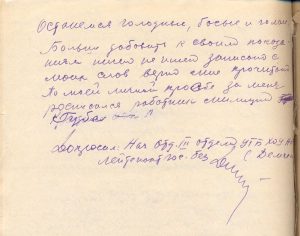 Останемся голодные, босые и голые.
Больше добавить к своим показа-
ниям ничего не имею записано с
моих слов верно мне прочитано
По моей личной просьбе за меня
расписался работник милиции
Допросил: Нач отд. III отдела УГБ
Лейтенант гос. без